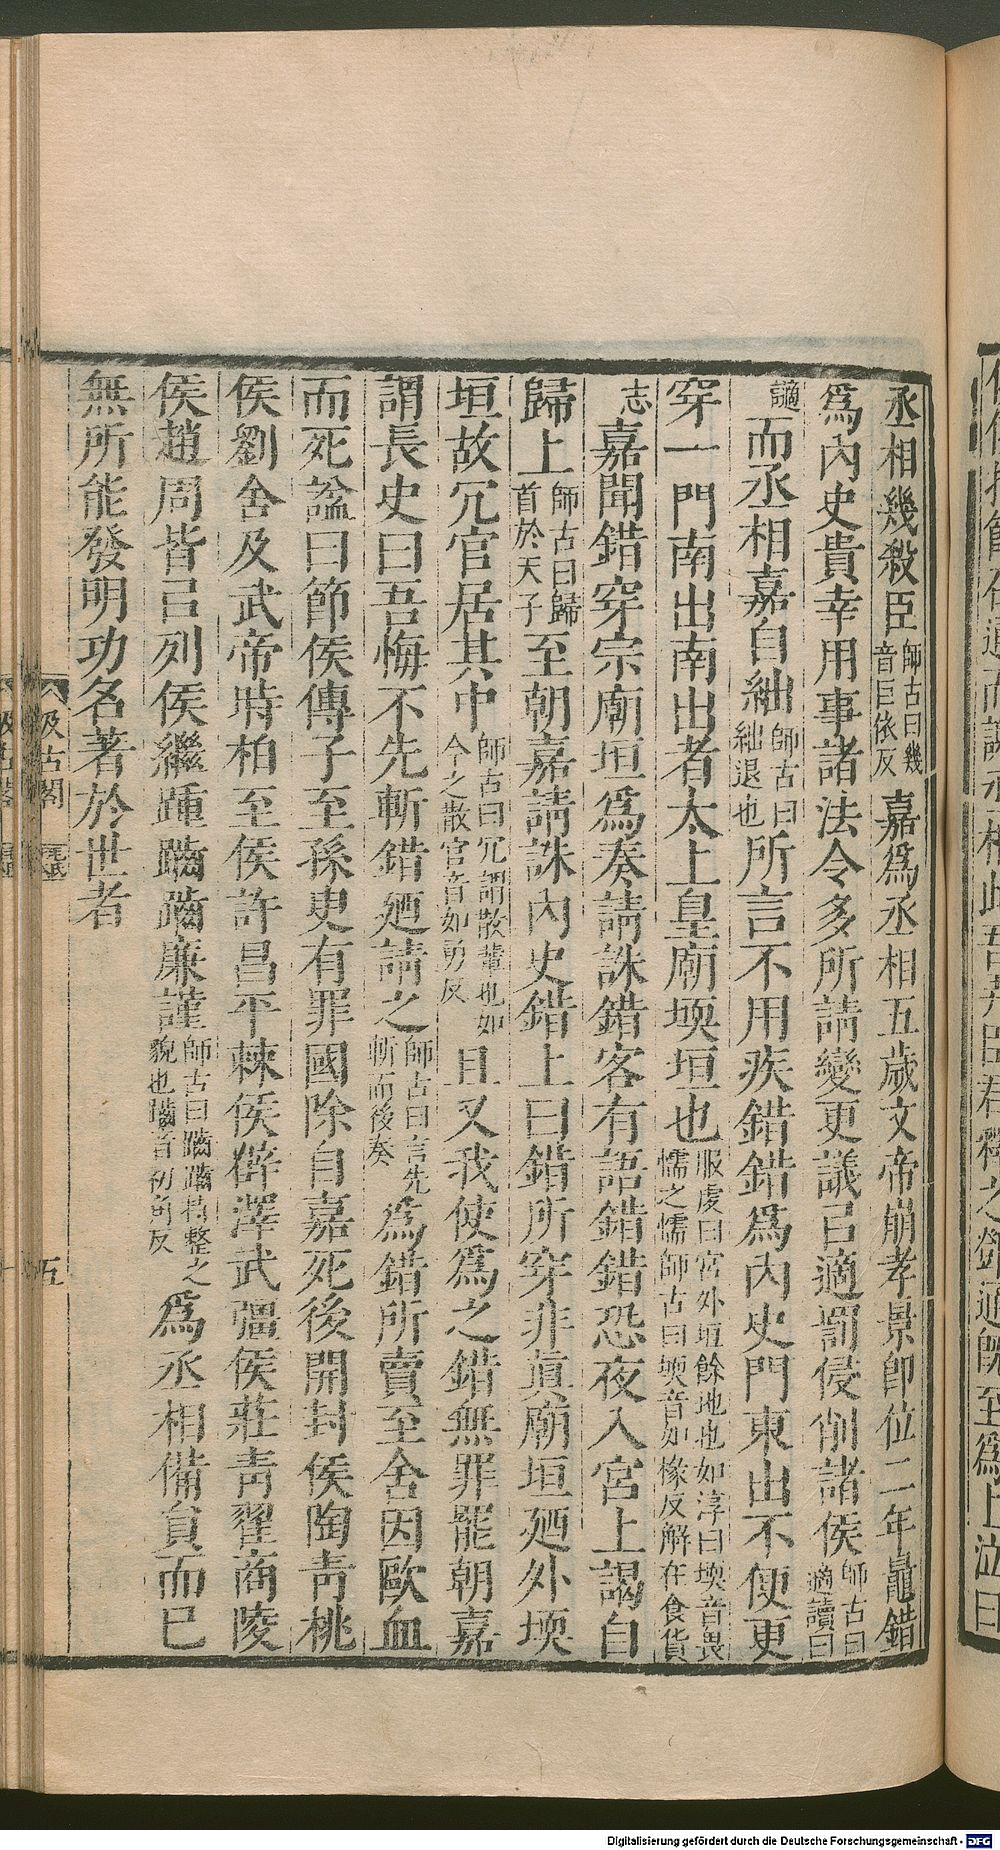 丞相幾殺臣師古曰幾音巨依反嘉爲丞相五歲文帝崩孝景即位二年鼂錯
爲內史貴幸用事諸法令多所請變更議㠯適罰侵削諸侯師古曰適讀曰
讁而丞相嘉自絀師古曰絀退也所言不用疾錯錯爲內史門東出不便更
穿一門南出南出者太上皇廟堧垣也服虔曰宮外垣餘地也如淳曰堧音畏懦之懦師古曰堧音如椽反解在食貨
志嘉聞錯穿宗廟垣爲奏請誅錯客有語錯錯恐夜入宮上謁自
歸上師古曰歸首於天子至朝嘉請誅內史錯上曰錯所穿非眞廟垣廼外堧
垣故冗官居其中師古曰冗謂散輩也如今之散官音如勇反且又我使爲之錯無罪罷朝嘉
謂長史曰吾悔不先斬錯廼請之師古曰言先斬而後奏爲錯所賣至舍因歐血
而死諡曰節侯傳子至孫臾有罪國除自嘉死後開封侯陶靑桃
侯劉舍及武帝時柏至侯許昌平棘侯薜澤武彊侯莊靑翟商陵
侯趙周皆㠯列侯繼踵䠡䠡廉謹師古曰䠡䠡持整之貌也䠡音初角反爲丞相備員而已
無所能發明功名著於世者
汲古閣
五
Digitalisierung gefördert durch die Deutsche Forschungsgemeinschaft - DFG